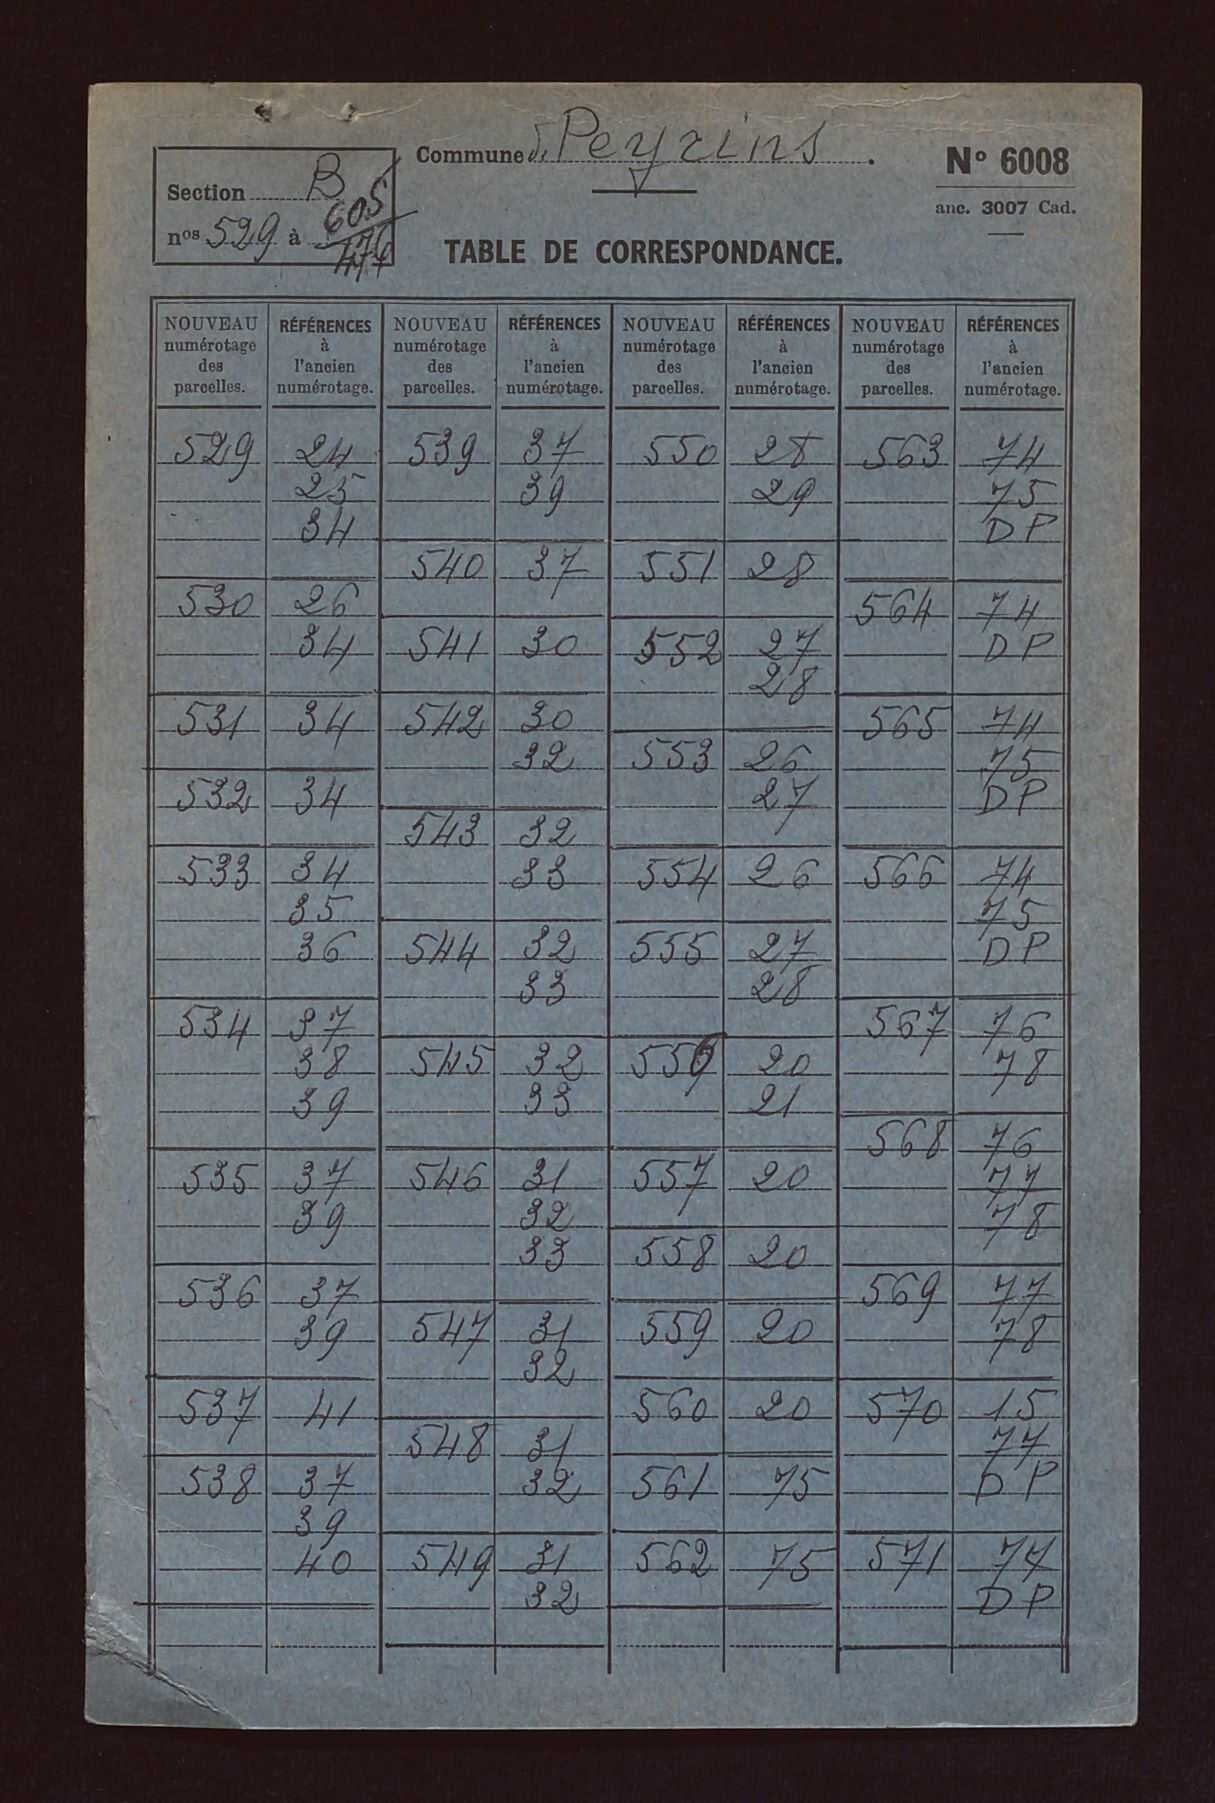 Commune de Peyrins.
Nº 6008
anc. 3007 Cad.
Section B
nos 529 à 605
TABLE DE CORRESPONDANCE.
NOUVEAU numérotage des parcelles. RÉFÉRENCES à l'ancien numérotage. NOUVEAU numérotage des parcelles. RÉFÉRENCES à l'ancien numérotage. NOUVEAU numérotage des parcelles. RÉFÉRENCES à l'ancien numérotage. NOUVEAU numérotage des parcelles. RÉFÉRENCES à l'ancien numérotage.
529 24 539 37 550 28 563 74
25 39 29 75
34 DP
540 37 551 28
530 26 564 74
34 541 30 552 27 DP
28
531 34 542 30 565 74
32 553 26 75
532 34 27 DP
543 32
533 34 33 554 26 566 74
35 75
36 544 32 555 27 DP
33 28
534 37 567 76
38 545 32 556 20 78
39 33 21
568 76
535 37 546 31 557 20 77
39 32 78
33 558 20
536 37 569 77
39 547 31 559 20 78
32
537 41 560 20 570 15
548 31 77
538 37 32 561 75 DP
39
40 549 31 562 75 571 77
32 DP